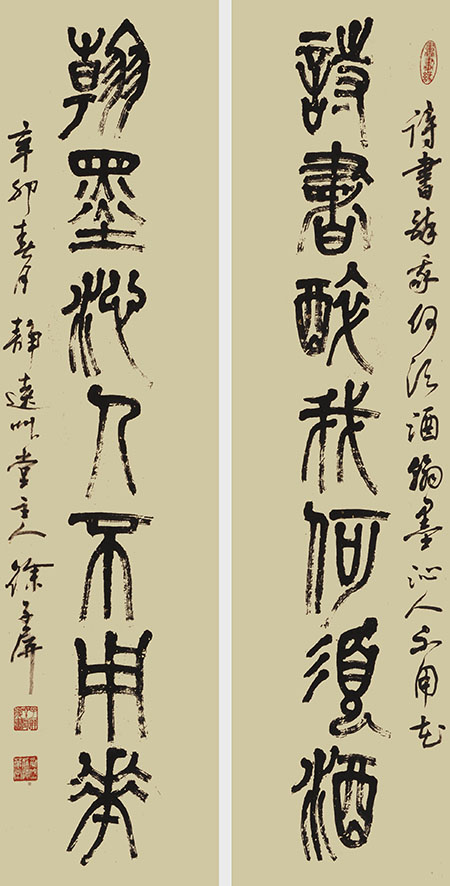 詩書醉我何須酒翰墨沁人不用花
詩書醉我何須酒
翰墨沁人不用華
辛卯春月靜遠艸堂主人徐